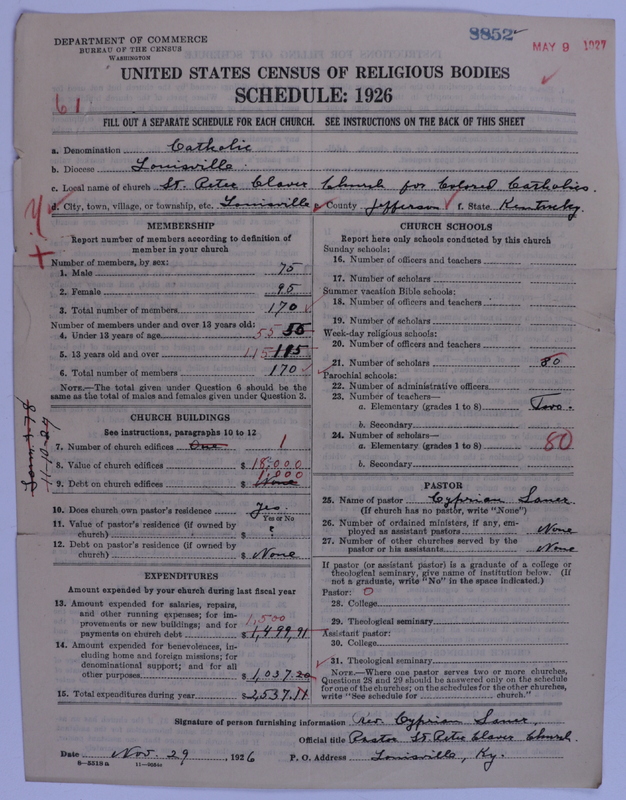 DEPARTMENT OF COMMERCE
BUREAU OF THE CENSUS
WASHINGTON
8852
MAY 9 1927
UNITED STATES CENSUS OF RELIGIOUS BODIES
SCHEDULE: 1926
61
FILL OUT A SEPARATE SCHEDULE FOR EACH CHURCH. SEE INSTRUCTIONS ON THE BACK OF THIS SHEET
a. Denomination Catholic
b. Diocese Louisville
c. Local name of church St. Peter Claver Church for Colored Catholics.
d. City, town, village, or township, etc. Louisville e. County Jefferson f. State Kentucky.
MEMBERSHIP
Report number of members according to definition of member in your church
Number of members, by sex:
1. Male 75
2. Female 95
3. Total number of members 170
Number of members under and over 13 years old:
4. Under 13 years of age 55 55
5. 13 years old and over 115 115
6. Total number of members 170
NOTE.—The total given under Question 6 should be the
same as the total of males and females given under Question 3.
CHURCH BUILDINGS
See instructions, paragraphs 10 to 12
7. Number of church edifices One 1
8. Value of church edifices $ 18,000
9. Debt on church edifices $ None 1,000
10. Does church own pastor's residence Yes
Yes or No
11. Value of pastor's residence (if owned by
church) $ ?
12. Debt on pastor's residence (if owned by
church) $ None
11-10-27
EXPENDITURES
Amount expended by your church during last fiscal year
13. Amount expended for salaries, repairs,
and other running expenses; for im-
provements or new buildings; and for
payments on church debt $ 1,499,91
1,500
14. Amount expended for benevolences, in-
cluding home and foreign missions; for
denominational support; and for all
other purposes $ 1,037.20
15. Total expenditures during year $ 2537.11
CHURCH SCHOOLS
Report here only schools conducted by this church
Sunday schools:
16. Number of officers and teachers
17. Number of scholars
Summer vacation Bible schools:
18. Number of officers and teachers
19. Number of scholars
Week-day religious schools:
20. Number of officers and teachers
21. Number of scholars 80
Parochial schools:
22. Number of administrative officers
23. Number of teachers—
a. Elementary (grades 1 to 8) Two.
b. Secondary
24. Number of scholars—
a. Elementary (grades 1 to 8) 80
b. Secondary
PASTOR
25. Name of pastor Cyprian Sauer
(If church has no pastor, write "None")
26. Number of ordained ministers, if any, em-
ployed as assistant pastors None
27. Number of other churches served by the
pastor or his assistants None
If pastor (or assistant pastor) is a graduate of a college or
theological seminary, give name of institution below. (If
not a graduate, write "No" in the space indicated.)
Pastor: 0
28. College
29. Theological seminary
Assistant pastor:
30. College
31. Theological seminary
NOTE.—Where one pastor serves two or more churches,
Questions 28 and 29 should be answered only on the schedule
for one of the churches; on the schedules for the other churches,
write "See schedule for church."
Signature of person furnishing information Rev. Cyprian Sauer.
Official title Pastor St. Peter Claver Church.
Date Nov. 29, 1926 P. O. Address Louisville, Ky.